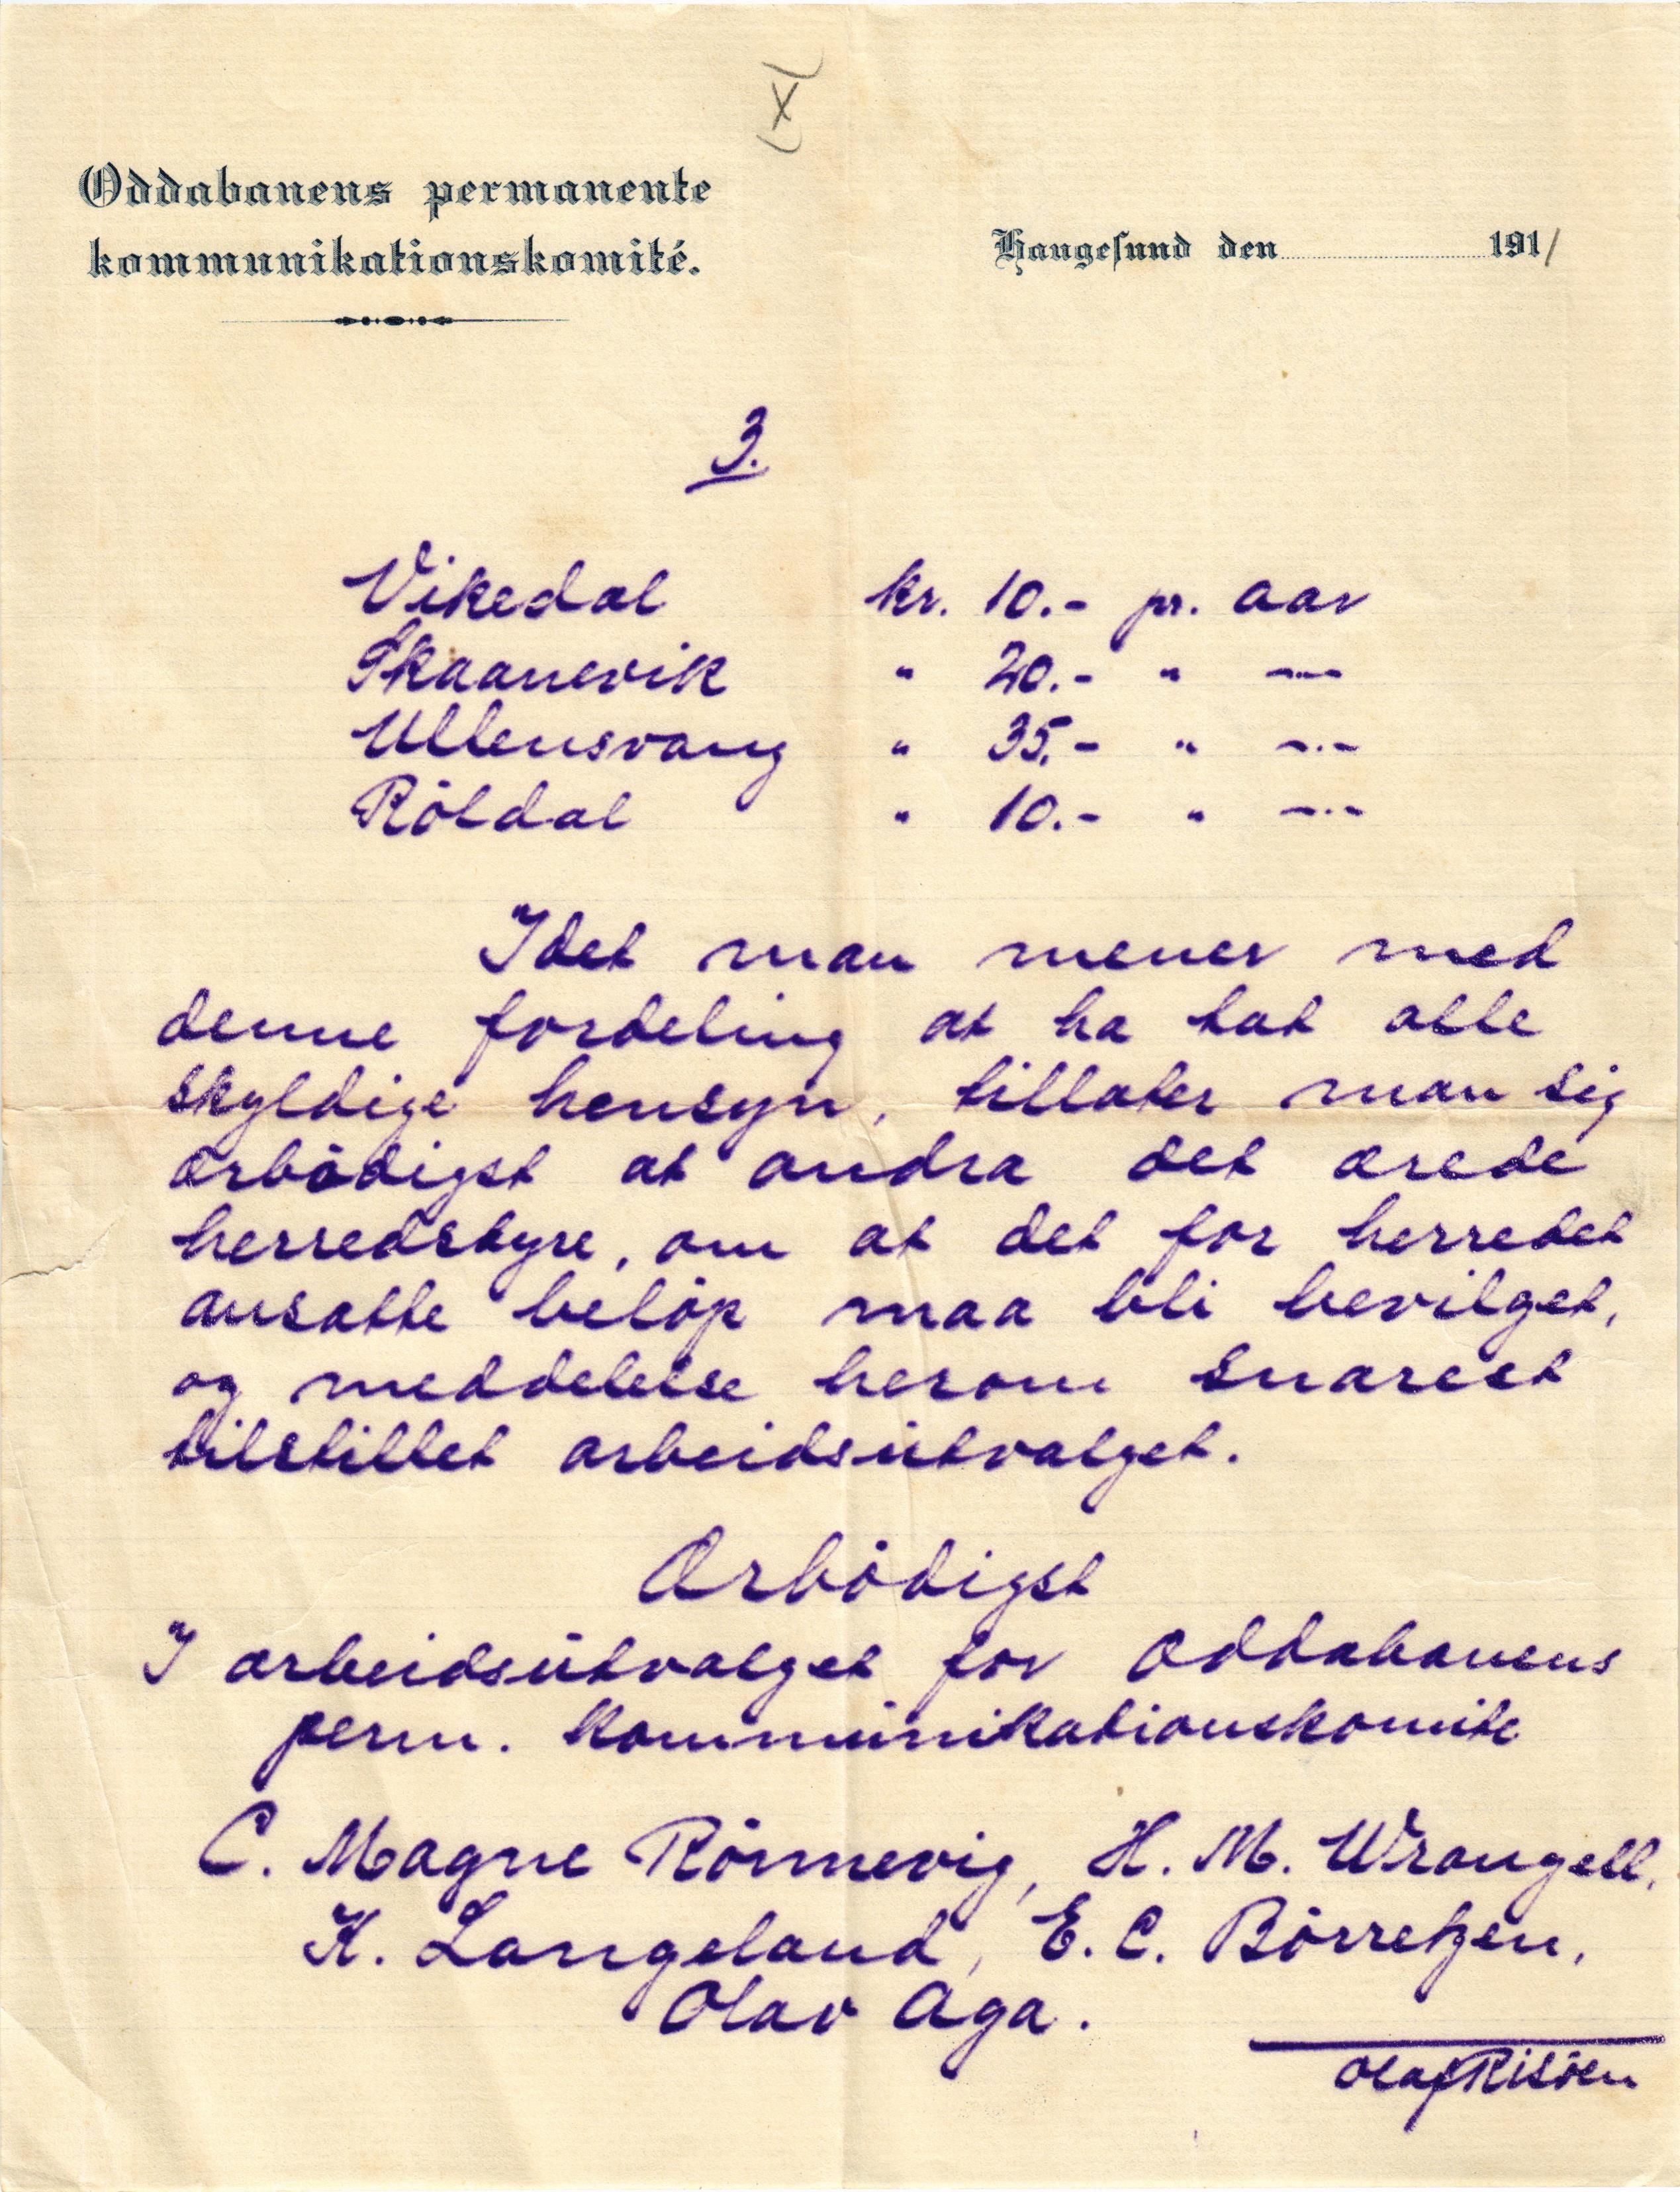 (X)
Oddabanens permanente
kommunikationskomité.
Haugesund den 1911
3.
Vikedal kr. 10.- pr. aar
Skaanevik " 20.- " -"-
Ullensvang " 35.- " -"-
Röldal " 10.- " -"-
Idet man mener med
denne fordeling at ha tat alle
skyldige hensyn, tillater man sig
ærbödigst at andra det ærede
herredstyre, om at det for herredet
ansatte belöp maa bli bevilget,
og meddelelse herom snarest
tilstillet arbeidsutvalget.
Ærbödigst
I arbeidsutvalget for Oddabanens
perm. kommunikationskomite
C. Magne Rönnevig, H. M. Wrangell,
K. Langeland, E. C. Börretzen,
Olav Aga.
Olaf Risöen